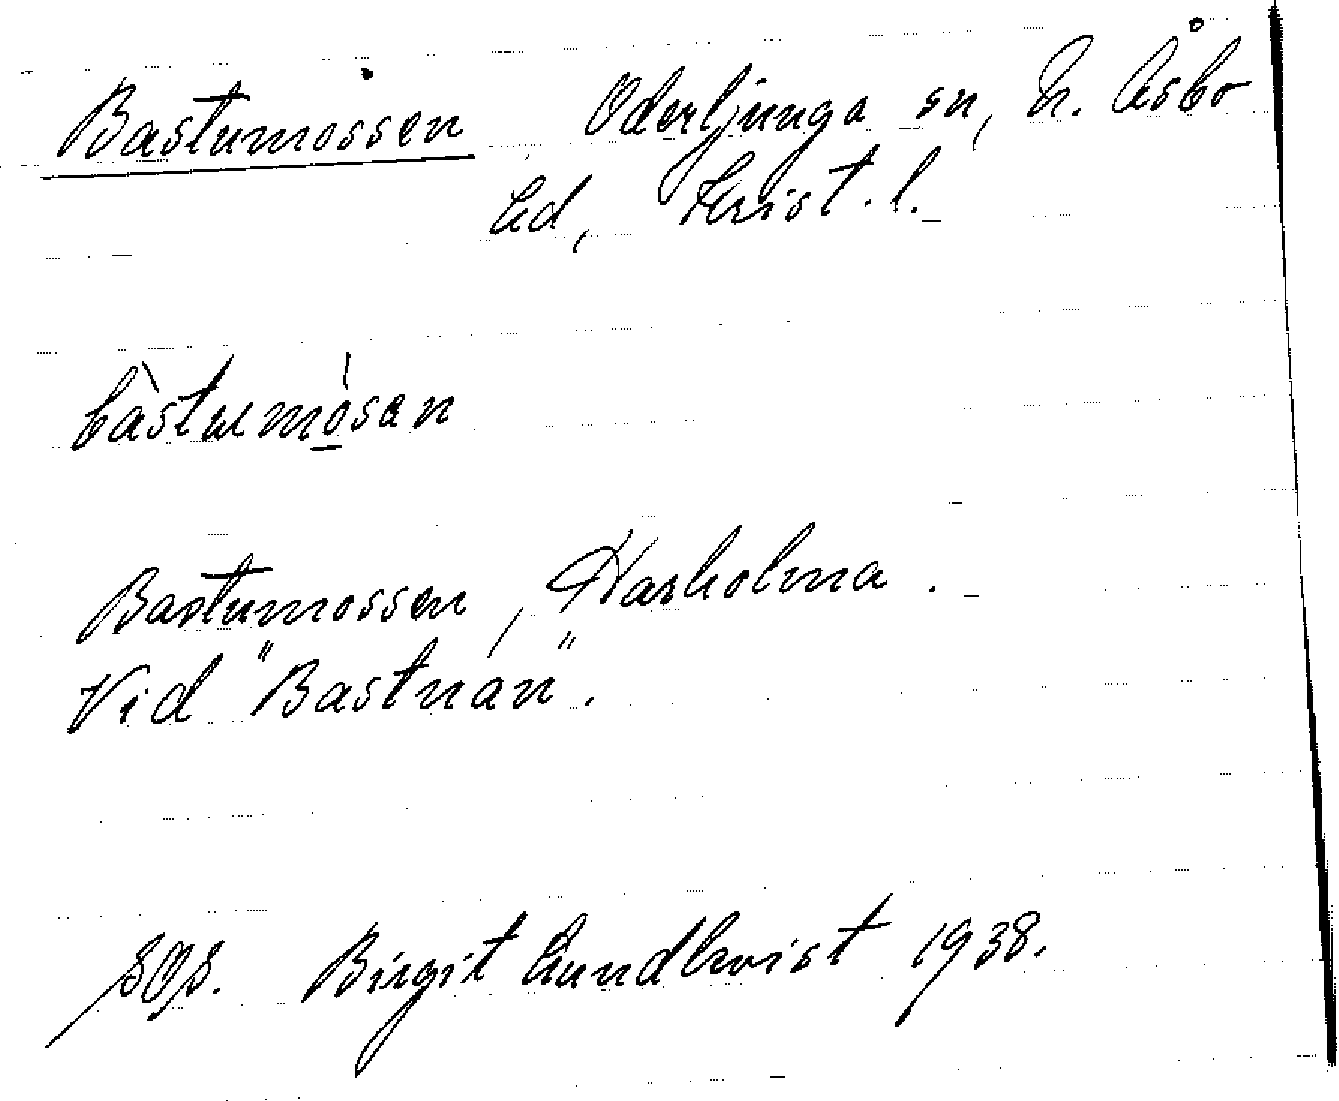 Bastumossen Oderljunga sn, N. Åsbo
hd, Krist. l.
bàstumòsan
Bastumossen, Harholma.
Vid "Bastnán".
SOS. Birgit Lundkvist 1938.